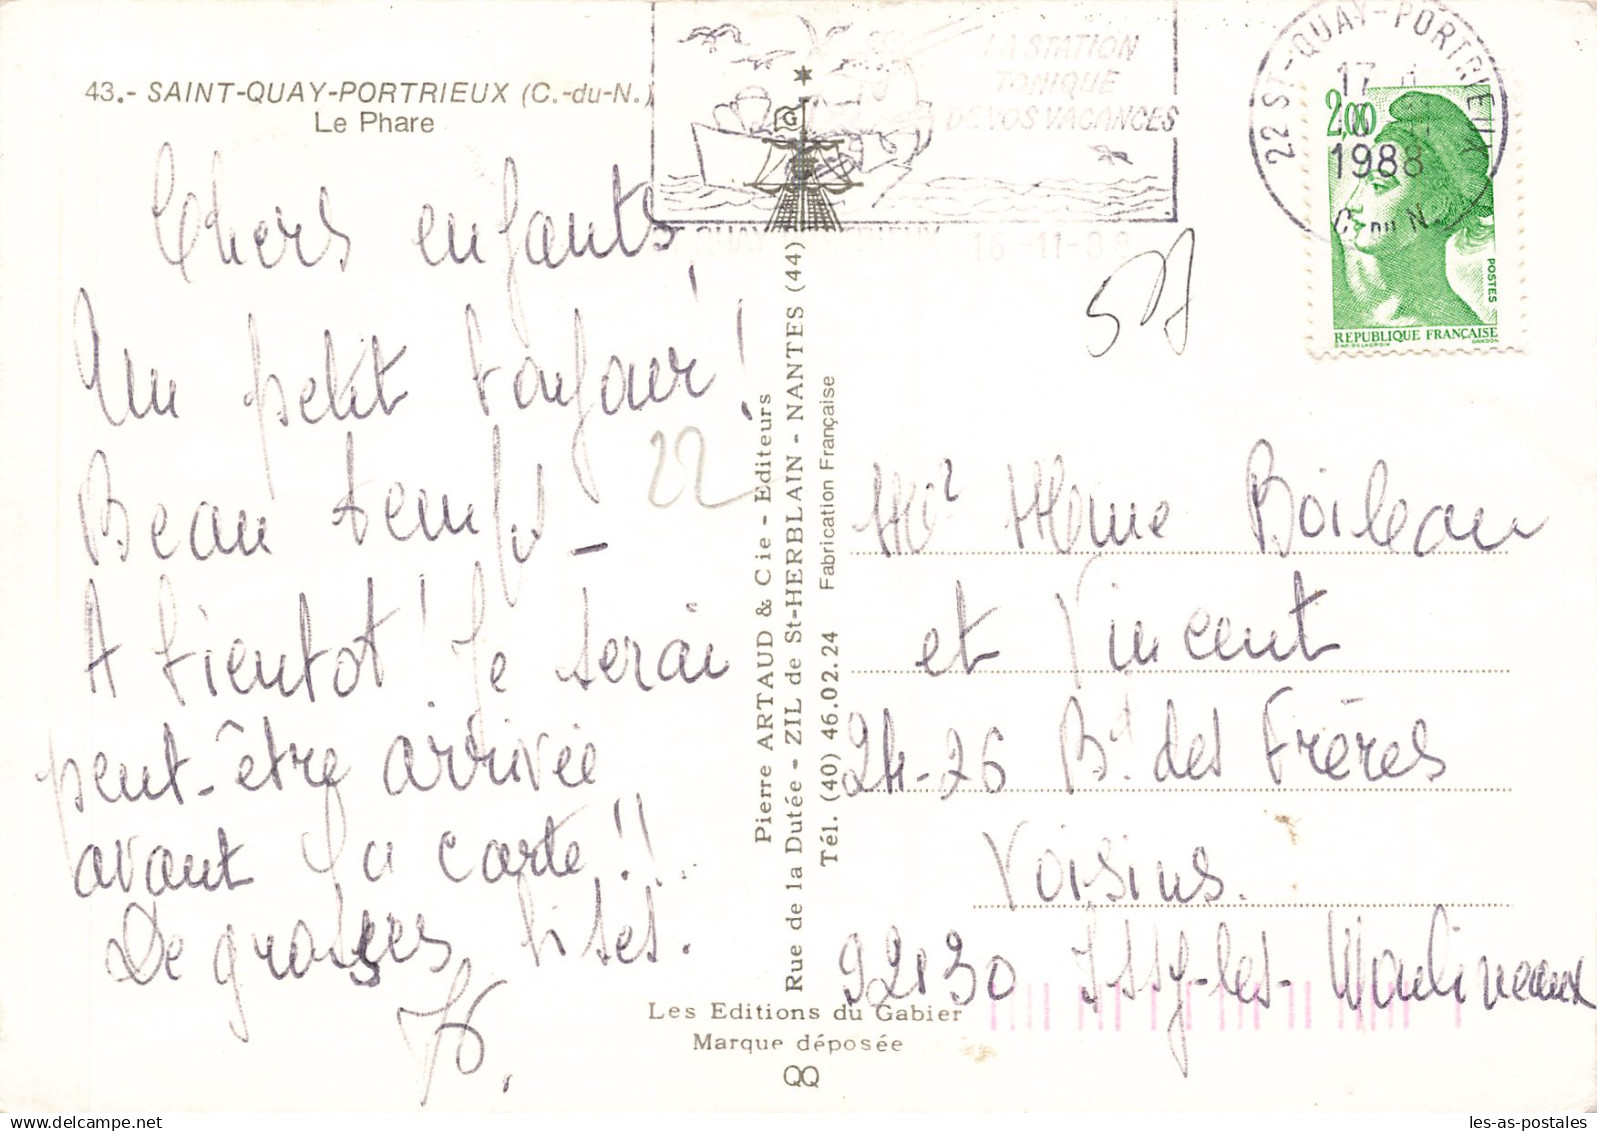 43.- SAINT-QUAY-PORTRIEUX (C.-du-N.)
Le Phare
LA STATION
TONIQUE
DE VOS VACANCES
16-11-88
22 ST-QUAY-PORTRIEUX
17
1988
C. DU N.
2,00
POSTES
REPUBLIQUE FRANÇAISE
Chers enfants,
Un petit bonjour !
Beau temps –
A bientôt ! Je serai
peut-être arrivée
avant la carte !!
De grosses bises.
22
Pierre ARTAUD & Cie - Editeurs
Rue de la Dutée - ZIL de St-HERBLAIN - NANTES (44)
Tél. (40) 46.02.24 Fabrication Française
Mr Mme Boileau
et Vincent
24-26 Bd des Frères
Voisins.
92130 Issy-les-Moulineaux
Les Editions du Gabier
Marque déposée
les-as-postales